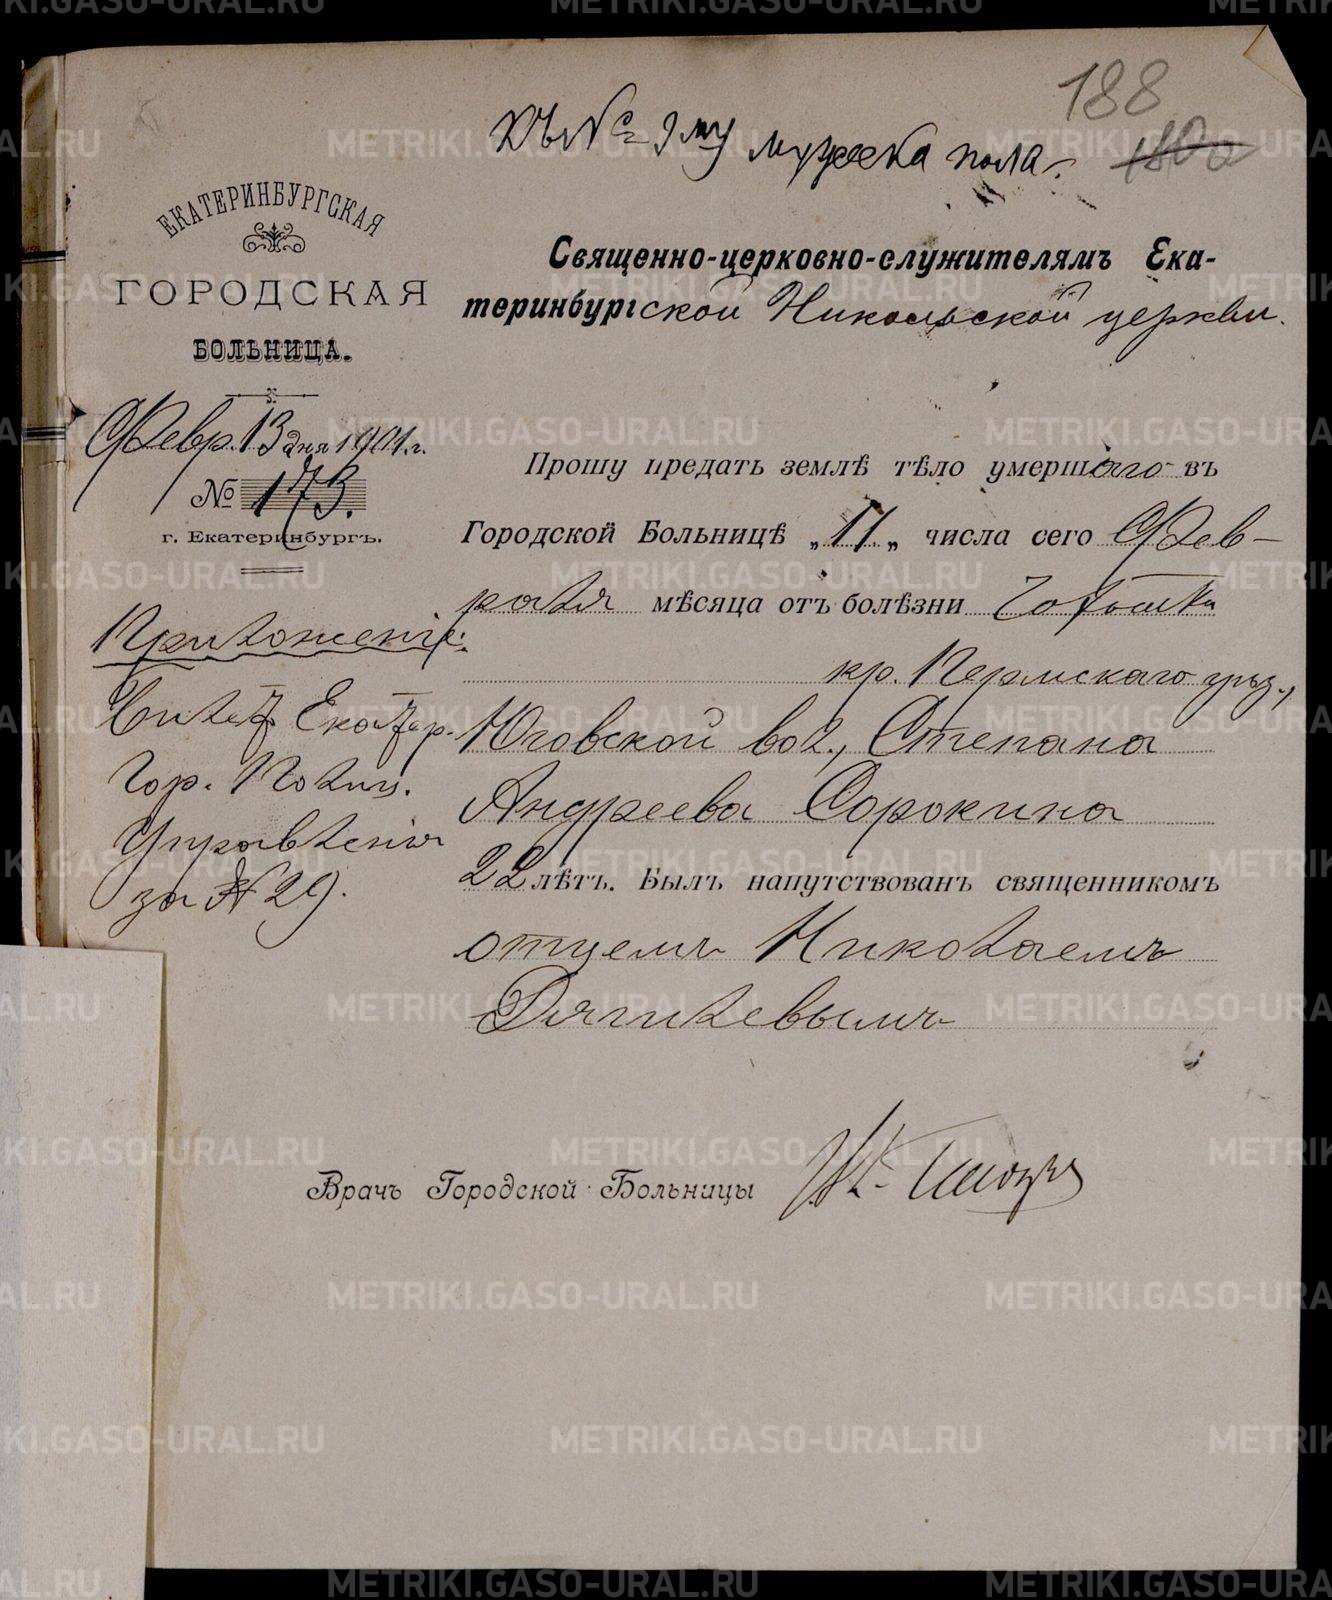 188
Къ № 9му мужска пола.
ЕКАТЕРИНБУРГСКАЯ
ГОРОДСКАЯ
БОЛЬНИЦА.
Февр. 13 дня 1901 г.
№ 173.
г. Екатеринбургъ.
Приложеніе:
Билетъ Екатер.
Гор. Полиц.
Управленія
за № 29.
Священно-церковно-служителямъ Ека-
теринбургской Никольской церкви.
Прошу предать землѣ тѣло умершаго въ
Городской Больницѣ „11„ числа сего Фев-
раля мѣсяца отъ болѣзни Чахотка
кр. Пермскаго уѣз.,
Юговской вол., Степана
Андреева Сорокина
22 лѣтъ. Былъ напутствованъ священникомъ
отцемъ Николаемъ
Дягилевымъ
Врачъ Городской Больницы
METRIKI.GASO-URAL.RU